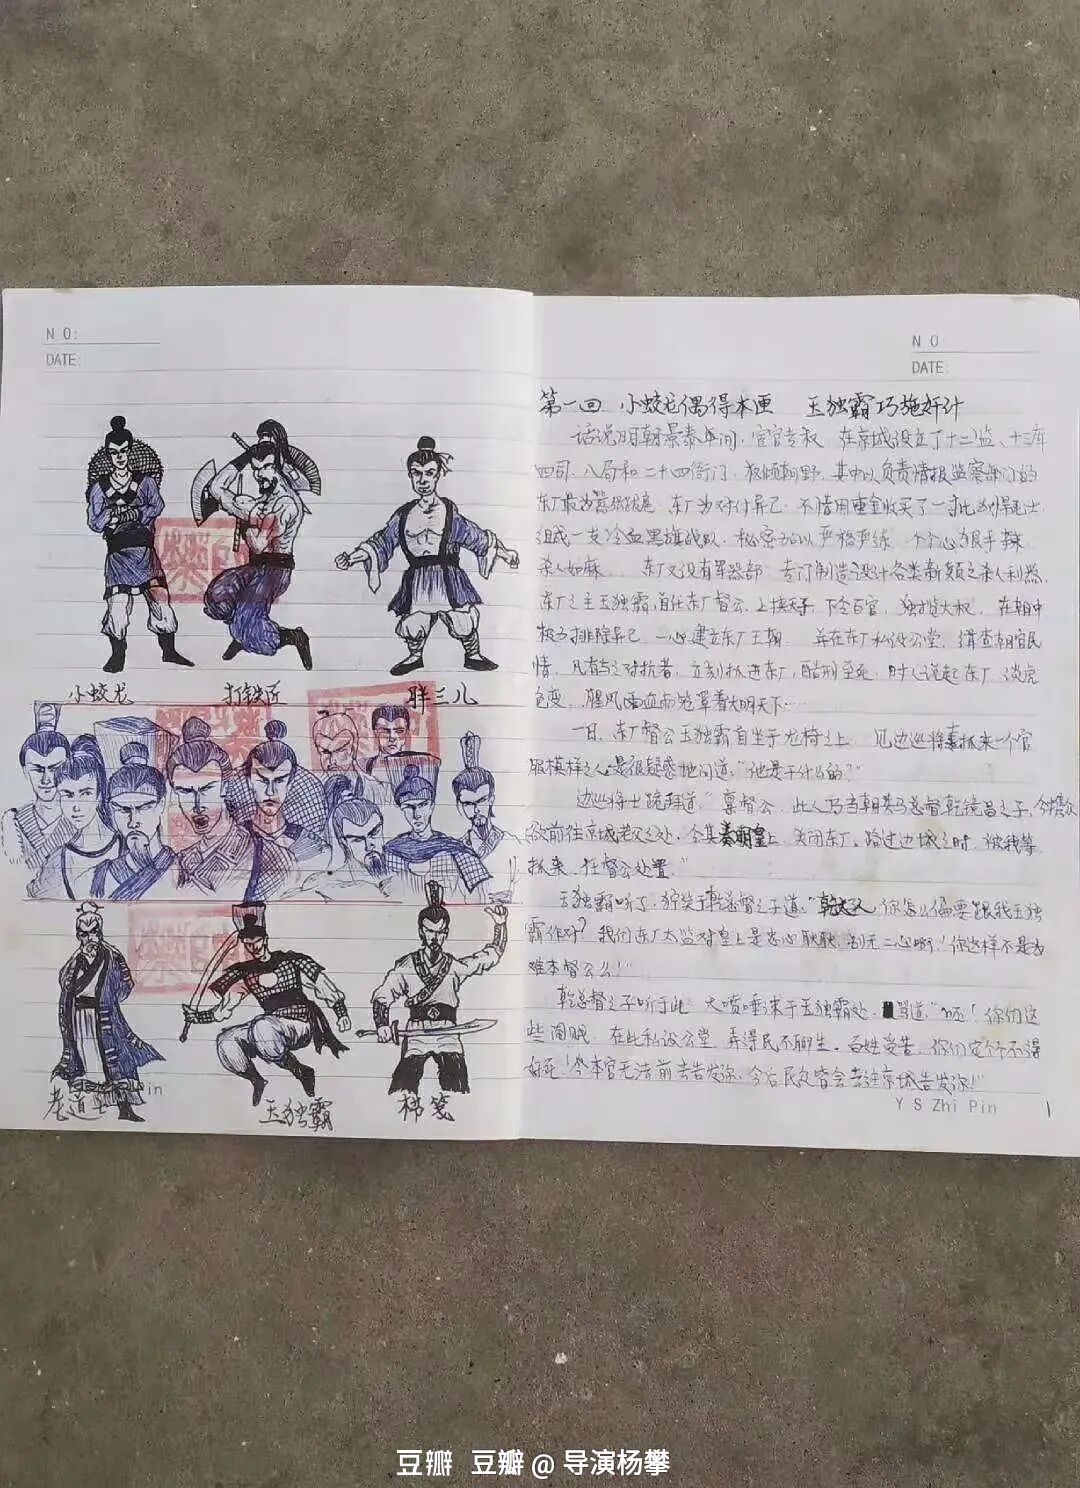 NO:
DATE:
小蛟龙 打铁匠 胖三儿
老道士 玉独霸 梯笺
NO
DATE:
第一回 小蛟龙偶得本画 玉独霸巧施奸计
话说明朝景泰年间，宦官专权，在京城设立了十二监、十三库
四司、八局和二十四衙门，权倾朝野，其中以负责情报监察部门的
东厂最为嚣张跋扈，东厂为对付异己，不惜用重金收买了一
组成一支冷血黑旗战队，秘密加以严格严练，个个心狠手辣
杀人如麻 东厂又设有军器部，专门制造设计各类新颖之杀人利器
东厂之主玉独霸，自任东厂督公，上挟天子，下令百官，独揽大权，在朝中
极力排除异己，一心建立东厂王朝 并在东厂私设公堂，缉查朝官民
情，凡有与之对抗者，立刻抓进东厂，酷刑至死，时人说起东厂，谈虎
色变，腥风血雨笼罩着大明天下……
一日，东厂督公玉独霸自坐于龙椅之上，见边巡将士抓来一个官
服模样之人，是很疑惑地问道，“他是干什么的？”
边巡将士跪拜道“禀督公，此人乃当朝 总督乾镜昌之子，今
欲前往京城老父之处，令其奏明皇上，关闭东厂。路过边城之时，被我等
抓来，任督公处置。”
玉独霸听了，狞笑于乾总督之子道，“乾大人，你怎么偏要跟我玉独
霸作对？我们东厂太监对皇上是忠心耿耿，别无二心啊！你这样不是为
难本督公么！”
乾总督之子听于此，大喷唾沫于玉独霸处，骂道，“呸！你们这
些阉贼，在此私设公堂，弄得民不聊生，百姓受苦，你们定将不得
好死！今本官无法前去告发你，今后民众皆会去往京城告发你！”
Y S Zhi Pin
1
豆瓣 豆瓣@导演杨攀